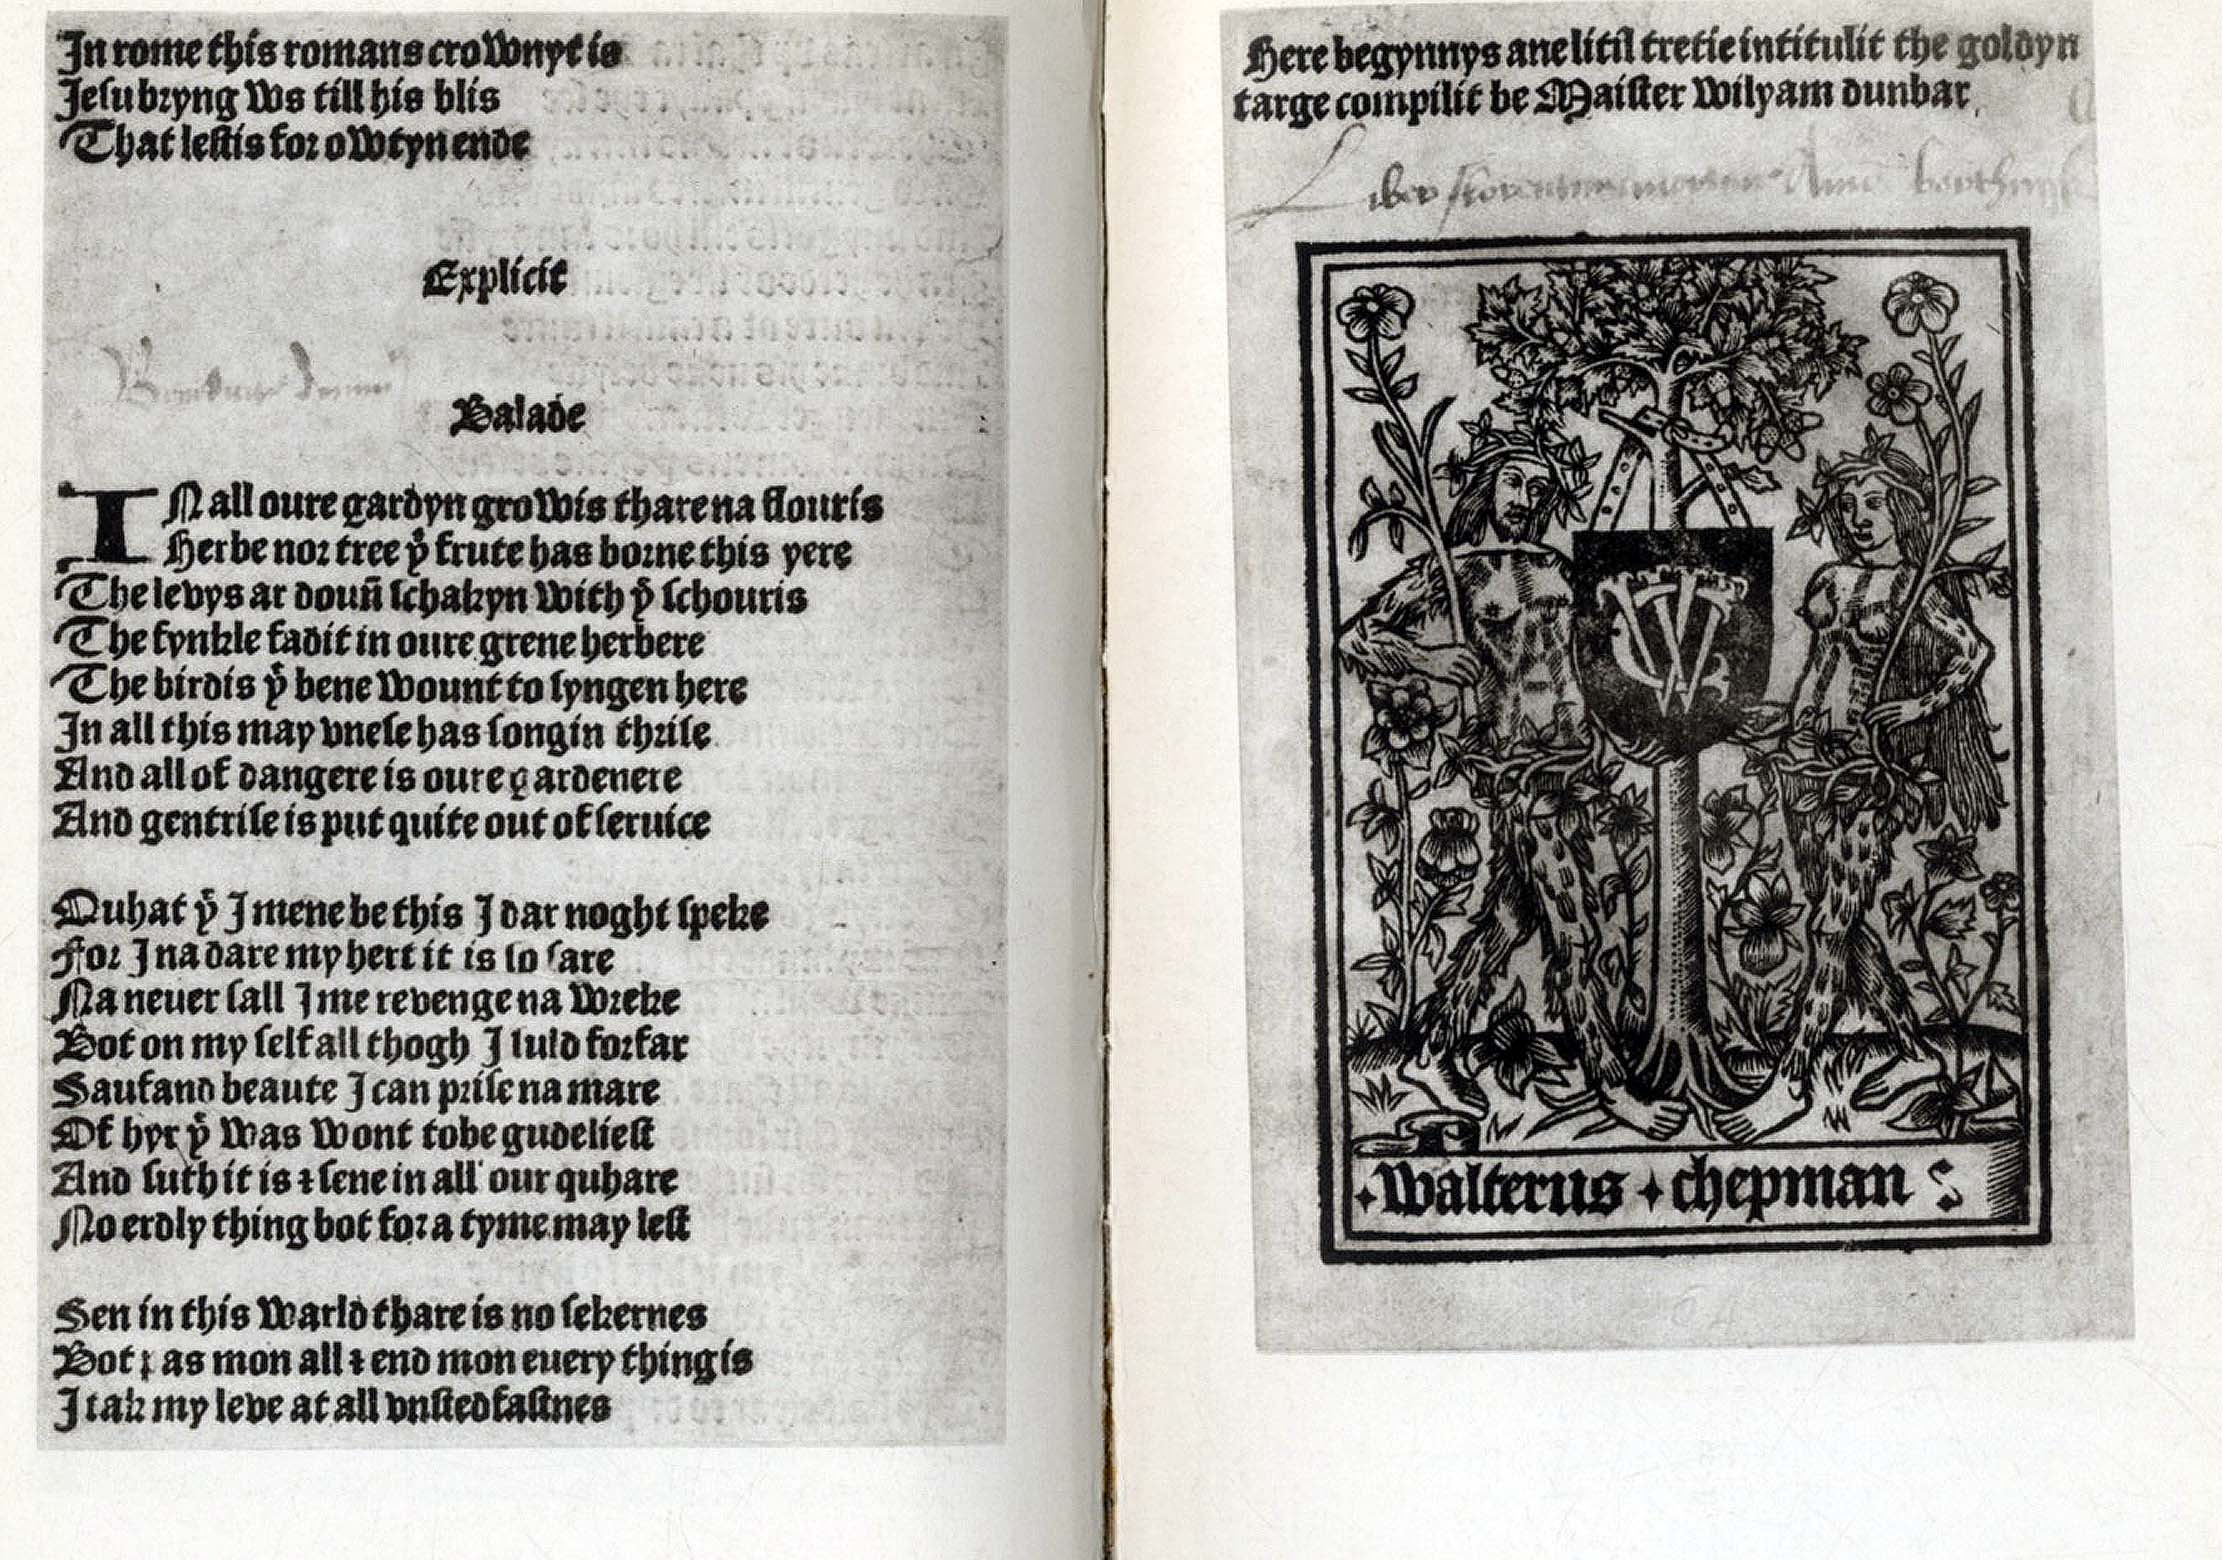 In rome this romans crownyt is
Jesu bryng ws till his blis
That lestis for owtyn ende
Explicit
Balade
IN all oure gardyn growis thare na flouris
Herbe nor tree yͭ frute has borne this yere
The levys ar douñ schakyn with yͤ schouris
The fynkle fadit in oure grene herbere
The birdis yͭ bene wount to syngen here
In all this may vnese has songin thrise
And all of dangere is oure gardenere
And gentrise is put quite out of seruice
Quhat yͭ I mene be this I dar noght speke
For I na dare my hert it is so sare
Na neuer sall I me revenge na wreke
Bot on my self all thogh I suld forfar
Saufand beaute I can prise na mare
Of hyr yͭ was wont to be gudeliest
And suth it is ⁊ sene in all our quhare
No erdly thing bot for a tyme may lest
Sen in this warld thare is no sekernes
Bot ; as mon all ⁊ end mon euery thing is
I tak my leve at all vnstedfastnes
Here begynnys ane litil tretie intitulit the goldyn
targe compilit be Maister Wilyam dunbar
Liber
W
Walterus chepman